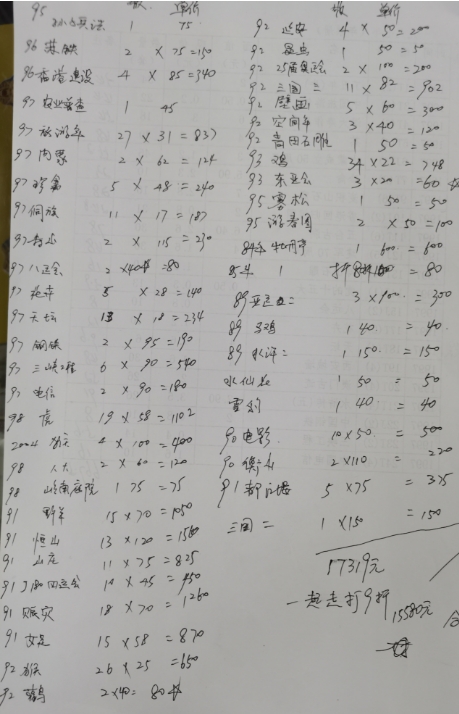 95 数 单价
1 75
96 2 × 75 = 150
96 香港建设 4 × 85 = 340
97 农业普查 1 45
97 旅游年 27 × 31 = 837
97 2 × 62 = 124
97 珍禽 5 × 48 = 240
97 侗族 11 × 17 = 187
97 寿山 2 × 115 = 230
97 八运会 2 × 40 = 80
97 5 × 28 = 140
97 天坛 13 × 18 = 234
97 钢铁 2 × 95 = 190
97 三峡工程 6 × 90 = 540
97 电信 2 × 90 = 180
98 虎 19 × 58 = 1102
2004 4 × 100 = 400
98 人大 2 × 60 = 120
98 岭南庭院 1 75 = 75
91 野羊 15 × 70 = 1050
91 恒山 13 × 120 = 1560
91 山庄 11 × 75 = 825
91 10 × 45 = 450
91 赈灾 18 × 70 = 1260
91 女足 15 × 58 = 870
92 猴 26 × 25 = 650
92 鹳 2 × 40 = 80
数 单价
92 延安 4 × 50 = 200
92 昆虫 1 50 = 50
92 25届奥运会 2 × 100 = 200
92 三国三 11 × 82 = 902
92 壁画 5 × 60 = 300
92 空间年 3 × 40 = 120
92 青田石雕 1 50 = 50
93 鸡 34 × 22 = 748
93 东亚会 3 × 20 = 60
95 雪松 1 50 = 50
95 游春图 2 × 50 = 100
84年 牡丹亭 1 600 = 600
85年 1 = 80
89 3 × 100 = 300
89 1 40 = 40
89 水浒二 1 150 = 150
水仙花 1 50 = 50
雷利 1 40 = 40
90 电影 10 × 50 = 500
90 衡山 2 × 110 = 220
91 都江堰 5 × 75 = 375
三国二 1 × 150 = 150
17319元
一起走打9折 15580元